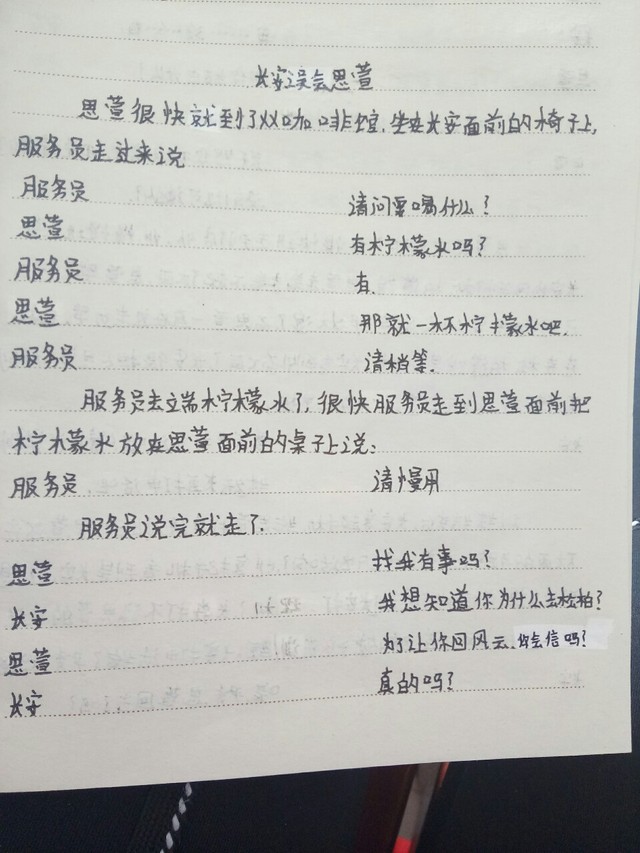 长安误会思萱
思萱很快就到了双咖啡馆,坐在长安面前的椅子上,
服务员走过来说
服务员 请问要喝什么?
思萱 有柠檬水吗?
服务员 有.
思萱 那就一杯柠檬水吧.
服务员 请稍等.
服务员去端柠檬水了,很快服务员走到思萱面前把
柠檬水放在思萱面前的桌子上说:
服务员 请慢用
服务员说完就走了.
思萱 找我有事吗?
长安 我想知道你为什么去检拍?
思萱 为了让你回风云,你会信吗?
长安 真的吗?